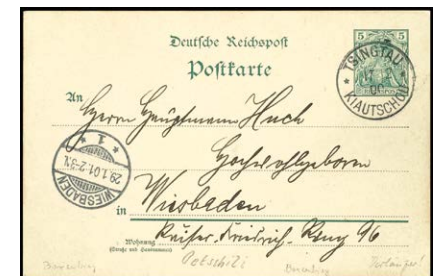 Deutsche Reichspost
Postkarte
5 5
TSINGTAU
KIAUTSCHOU
An Herrn Hauptmann Huch
Hochwohlgeboren
* 1 *
29.1.01.2-3N.
WIESBADEN
in Wiesbaden
Wohnung
(Straße und Hausnummer)
Kaiser-Friedrich-Ring 96
Petschili